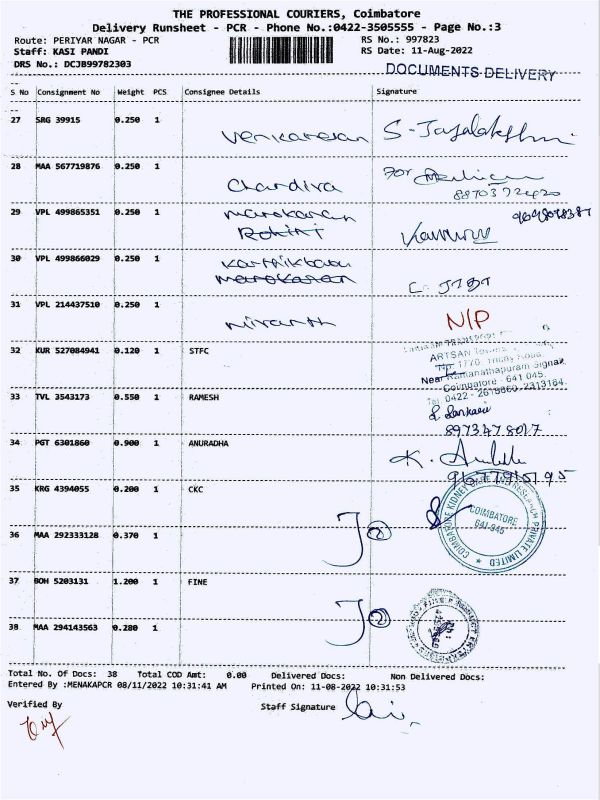 THE PROFESSIONAL COURIERS, Coimbatore
Delivery Runsheet - PCR - Phone No.:0422-3505555 - Page No.:3
Route: PERIYAR NAGAR - PCR RS No.: 997823
Staff: KASI PANDI RS Date: 11-Aug-2022
DRS No.: DCJB99782303
DOCUMENTS DELIVERY
S No Consignment No Weight PCS Consignee Details Signature
27 SRG 39915 0.250 1
28 MAA 567719876 0.250 1 Chandira For
8870372420
29 VPL 499865351 0.250 1 Manokaran
Rohini
9698098387
30 VPL 499866029 0.250 1 Karthikbabu
Manokaran
31 VPL 214437510 0.250 1 N/P
32 KUR 527084941 0.120 1 STFC
ARTSAN
Near Ramanathapuram Signal,
Coimbatore - 641 045.
33 TVL 3543173 0.550 1 RAMESH
8973478017
34 PGT 6301860 0.900 1 ANURADHA K.
35 KRG 4394055 0.200 1 CKC
COIMBATORE KIDNEY CARE AND RESEARCH PRIVATE LIMITED
COIMBATORE
641 045
36 MAA 292333128 0.370 1
37 BOH 5203131 1.200 1 FINE
38 MAA 294143563 0.280 1
Total No. Of Docs: 38 Total COD Amt: 0.00 Delivered Docs: Non Delivered Docs:
Entered By :MENAKAPCR 08/11/2022 10:31:41 AM Printed On: 11-08-2022 10:31:53
Verified By Staff Signature